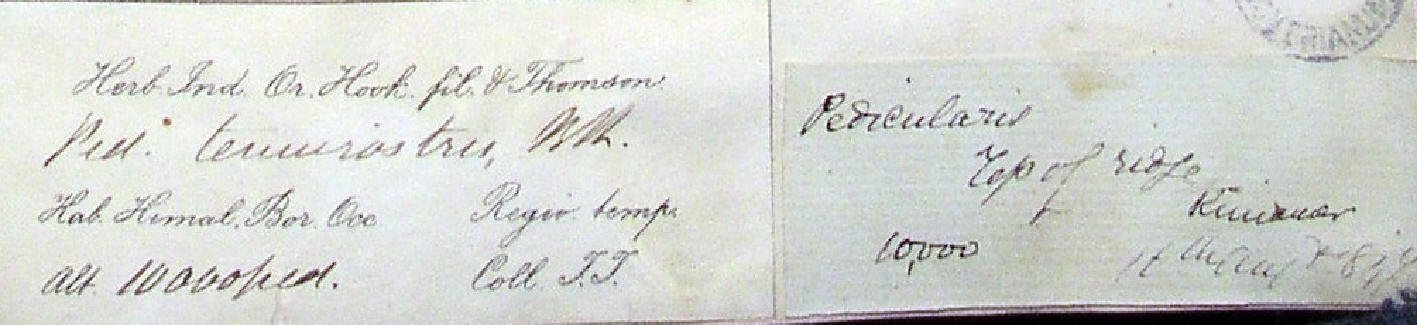 Herb. Ind. Or. Hook. fil. & Thomson.
Ped. tenuirostris, Bth.
Hab. Himal. Bor. Occ
Regio temp.
Alt. 10000 ped.
Coll. T.T.
Pedicularis
Top of ridge
Kunawar
10,000
Aug